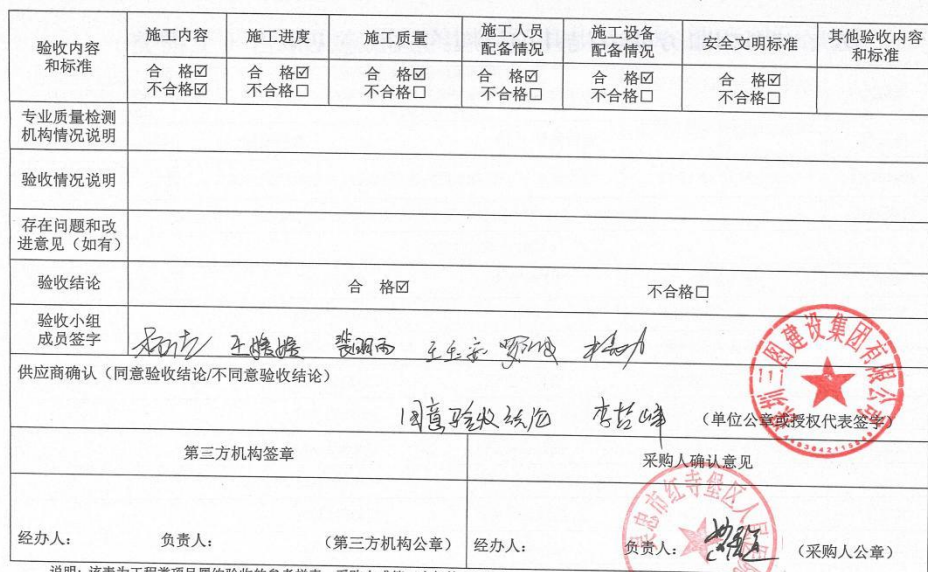 验收内容和标准
施工内容
施工进度
施工质量
施工人员配备情况
施工设备配备情况
安全文明标准
其他验收内容和标准
合 格☑
不合格☑
合 格☑
不合格☐
合 格☑
不合格☐
合 格☑
不合格☐
合 格☑
不合格☐
合 格☑
不合格☐
专业质量检测
机构情况说明
验收情况说明
存在问题和改
进意见（如有）
验收结论
合 格☑
不合格☐
验收小组
成员签字
供应商确认（同意验收结论/不同意验收结论）
同意验收结论 李哲峰 （单位公章或授权代表签字）
建设集团有限公司
第三方机构签章
采购人确认意见
吴忠市红寺堡区人民
经办人： 负责人： （第三方机构公章）
经办人： 负责人： （采购人公章）